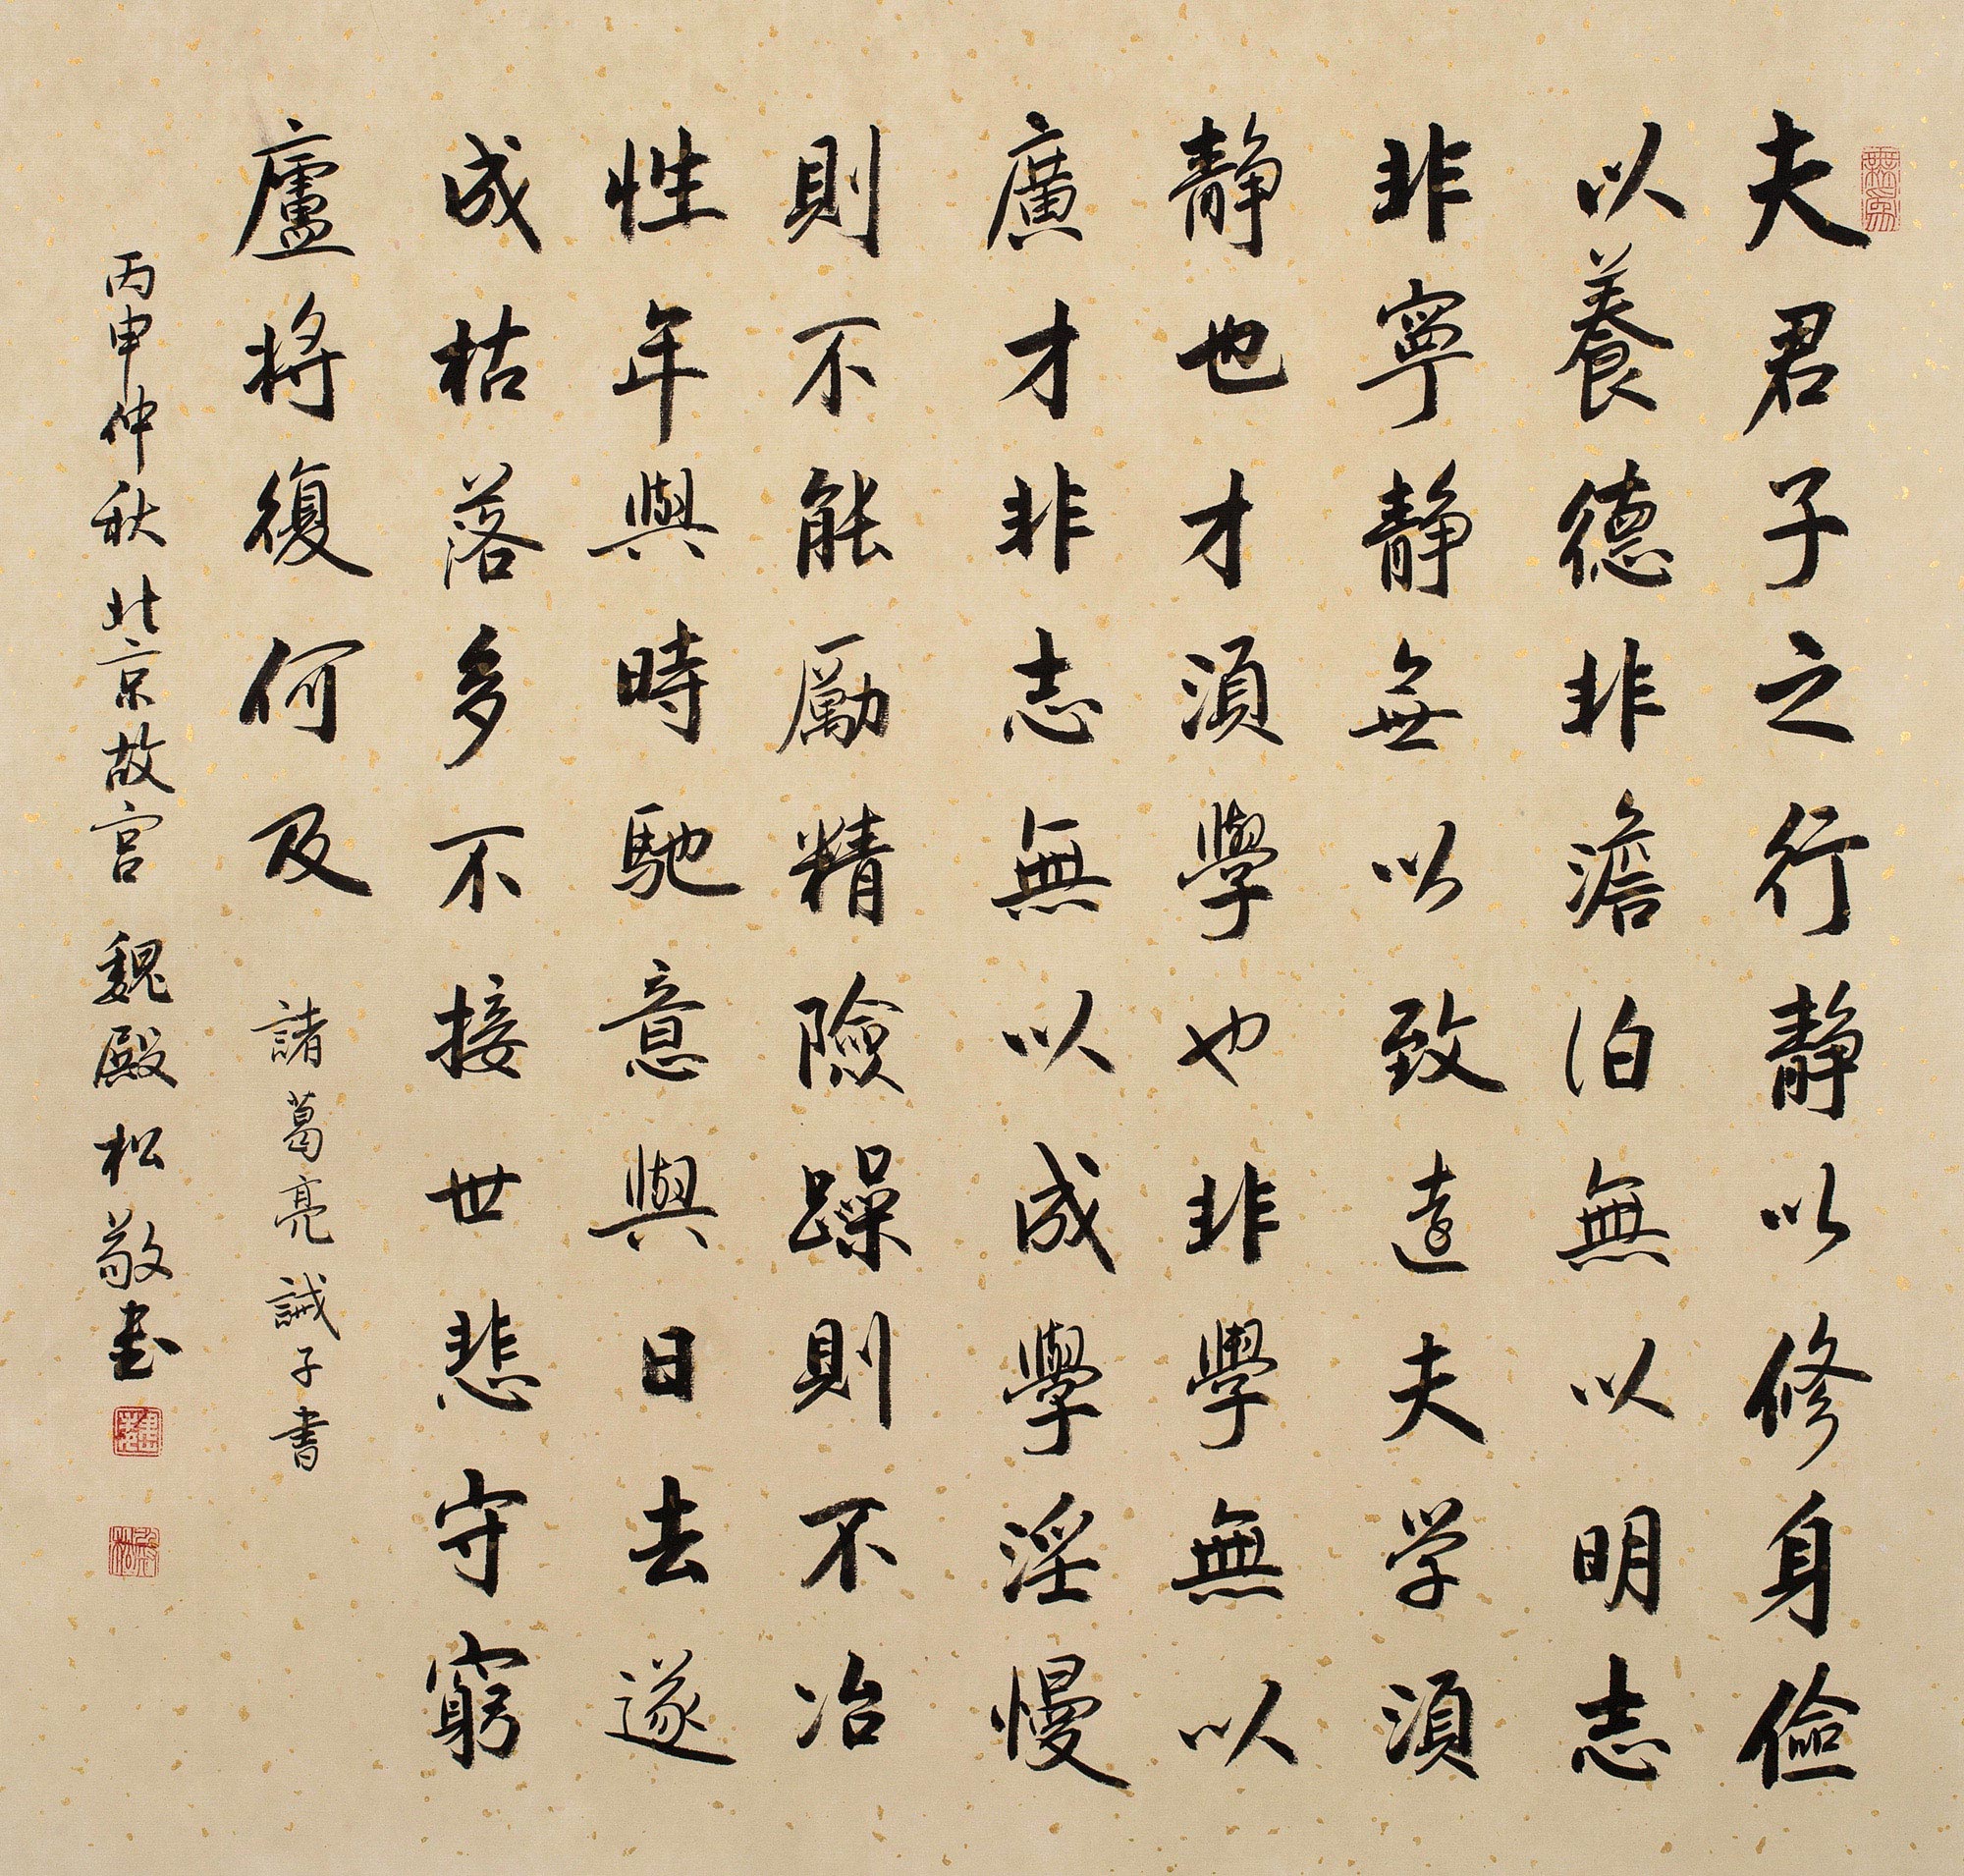 夫君子之行静以修身儉
以養德非澹泊無以明志
非寧静無以致遠夫学須
静也才須學也非學無以
廣才非志無以成學淫慢
則不能勵精險躁則不冶
性年與時馳意與日去遂
成枯落多不接世悲守窮
廬將復何及 諸葛亮誡子書
丙申仲秋北京故宫 魏殿松敬书